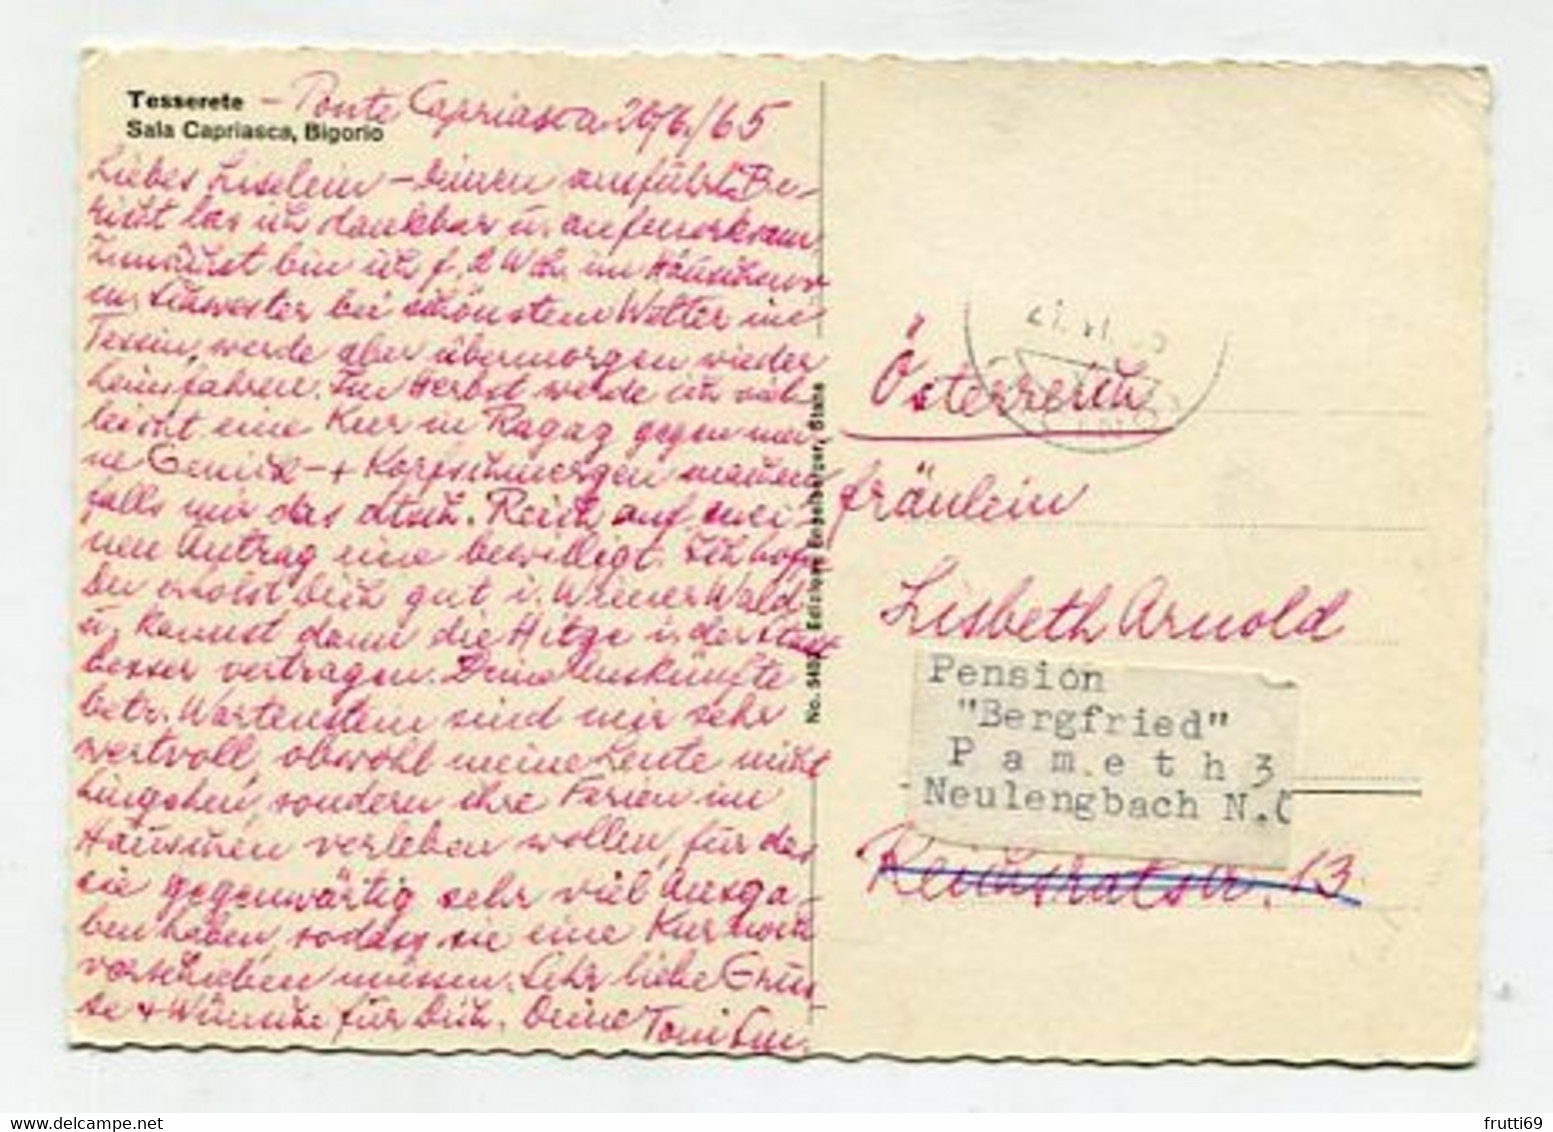 Tesserete - Ponte Capriasca 20/6./65
Sala Capriasca, Bigorio
Liebes Liselein - Deinen ausführl. Be-
richt las ich dankbar u. aufmerksam
Zunächst bin ich f. 2 Wch. im Häuschen
m. Schwester bei schönstem Wetter im
Tessin, werde aber übermorgen wieder
heimfahren. Im Herbst werde ich viel-
leicht eine Kur in Ragaz gegen mei-
ne Genick- + Kopfschmerzen machen
falls mir das dtsch. Reich auf mei-
nen Antrag eine bewilligt. Ich hoffe
Du erholst Dich gut i. Wiener Wald
u. kannst dann die Hitze i. der Stadt
besser vertragen. Deine Auskünfte
betr. Wartenstein sind mir sehr
wertvoll, obwohl meine Leute nicht
hingehen, sondern ihre Ferien im
Häuschen verleben wollen, für das
sie gegenwärtig sehr viel Ausga-
ben haben, sodass sie eine Kur noch
verschieben müssen. Sehr liebe Grüs-
se + Wünsche für Dich. Deine Toni
No. 5402 Edizione Engelberger, Stans
21. VI. 65
Österreich
Fräulein
Lisbeth Arnold
Pension
"Bergfried"
P a m e t h 3
Neulengbach N.Ö
Reichsratstr. 13
frutti69